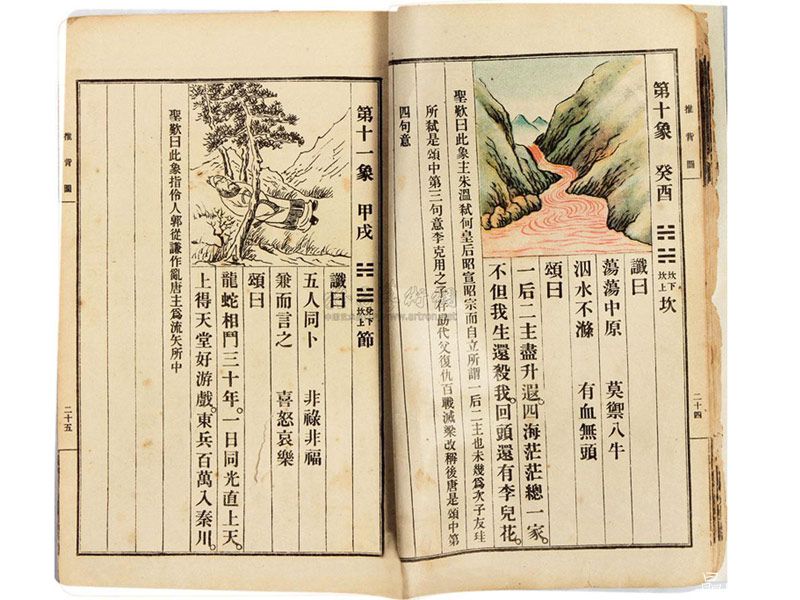 推背圖
二十四
第十象 癸酉 坎下坎上 坎
讖曰
蕩蕩中原 莫禦八牛
泅水不滌 有血無頭
頌曰
一后二主盡升遐。四海茫茫總一家。
不但我生還殺我。回頭還有李兒花。
聖歎曰此象主朱溫弒何皇后昭宣昭宗而自立所謂一后二主也未幾爲次子友珪
所弒是頌中第三句意李克用之子存勗代父復仇百戰滅梁改稱後唐是頌中第
四句意
第十一象 甲戌 兌下坎上 節
讖曰
五人同卜 非祿非福
兼而言之 喜怒哀樂
頌曰
龍蛇相鬥三十年。一日同光直上天。
上得天堂好游戲。東兵百萬入秦川。
聖歎曰此象指伶人郭從謙作亂唐主爲流矢所中
推背圖
二十五
www.artron.net